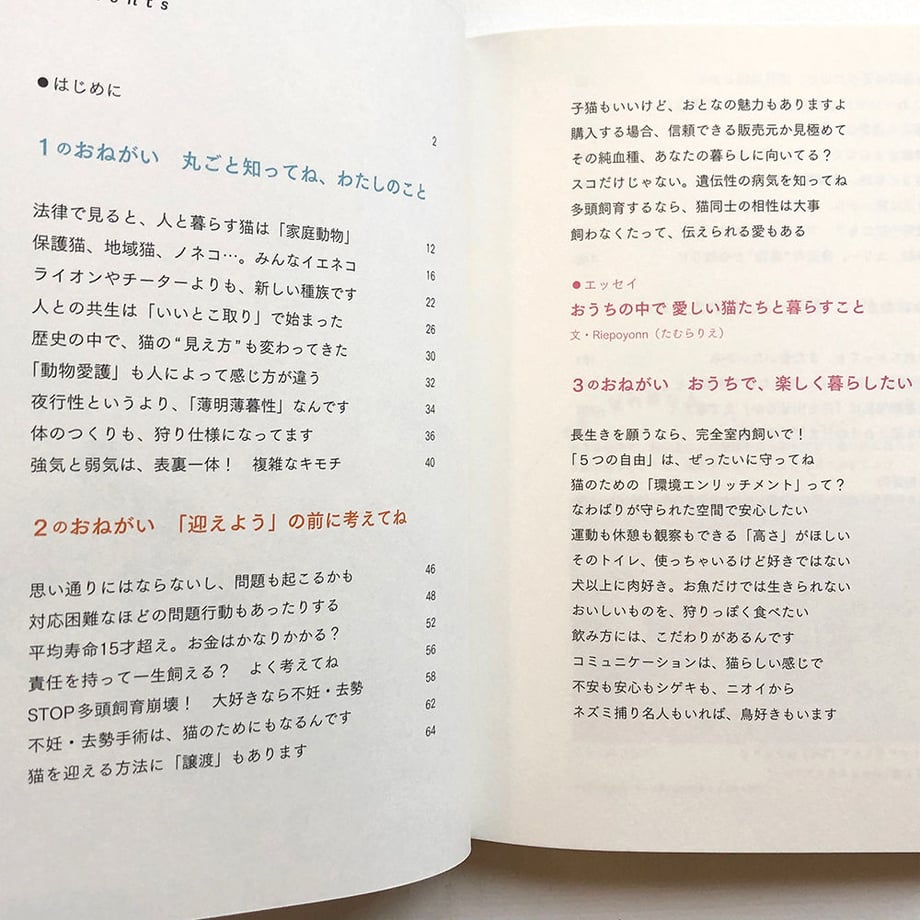 ●はじめに
2
1のおねがい 丸ごと知ってね、わたしのこと
法律で見ると、人と暮らす猫は「家庭動物」 12
保護猫、地域猫、ノネコ…。みんなイエネコ 16
ライオンやチーターよりも、新しい種族です 22
人との共生は「いいとこ取り」で始まった 26
歴史の中で、猫の“見え方”も変わってきた 30
「動物愛護」も人によって感じ方が違う 32
夜行性というより、「薄明薄暮性」なんです 34
体のつくりも、狩り仕様になってます 36
強気と弱気は、表裏一体! 複雑なキモチ 40
2のおねがい 「迎えよう」の前に考えてね
思い通りにはならないし、問題も起こるかも 46
対応困難なほどの問題行動もあったりする 48
平均寿命15才超え。お金はかなりかかる? 52
責任を持って一生飼える? よく考えてね 56
STOP多頭飼育崩壊! 大好きなら不妊・去勢 58
不妊・去勢手術は、猫のためにもなるんです 62
猫を迎える方法に「譲渡」もあります 64
子猫もいいけど、おとなの魅力もありますよ
購入する場合、信頼できる販売元か見極めて
その純血種、あなたの暮らしに向いてる?
スコだけじゃない。遺伝性の病気を知ってね
多頭飼育するなら、猫同士の相性は大事
飼わなくたって、伝えられる愛もある
●エッセイ
おうちの中で 愛しい猫たちと暮らすこと
文・Riepoyonn(たむらりえ)
3のおねがい おうちで、楽しく暮らしたい
長生きを願うなら、完全室内飼いで!
「5つの自由」は、ぜったいに守ってね
猫のための「環境エンリッチメント」って?
なわばりが守られた空間で安心したい
運動も休憩も観察もできる「高さ」がほしい
そのトイレ、使っちゃいるけど好きではない
犬以上に肉好き。お魚だけでは生きられない
おいしいものを、狩りっぽく食べたい
飲み方には、こだわりがあるんです
コミュニケーションは、猫らしい感じで
不安も安心もシゲキも、ニオイから
ネズミ捕り名人もいれば、鳥好きもいます